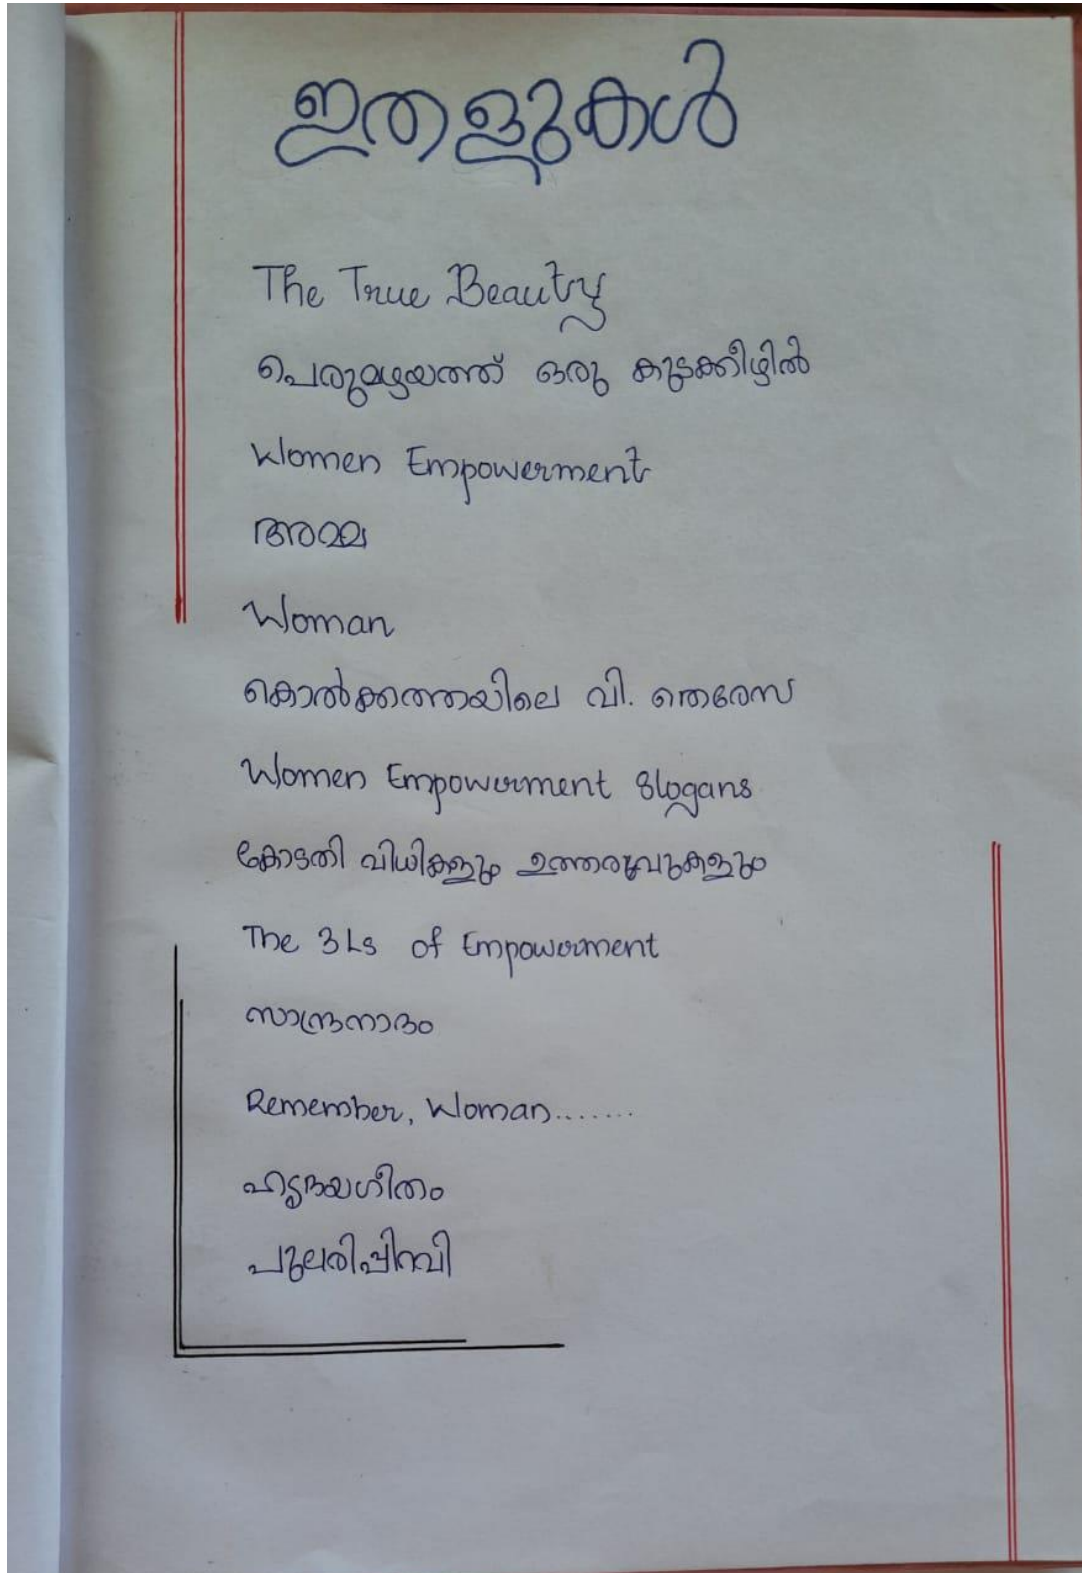 ഇതളുകൾ
The True Beauty
പെരുമഴയത്ത് ഒരു കുടക്കീഴിൽ
Women Empowerment
അമ്മ
Woman
കൊൽക്കത്തയിലെ വി. തെരേസ
Women Empowerment Slogans
കോടതി വിധികളും ഉത്തരവുകളും
The 3 Ls of Empowerment
സാന്ദ്രനാദം
Remember, Woman.......
ഹൃദയഗീതം
പുലരിപ്പിറവി